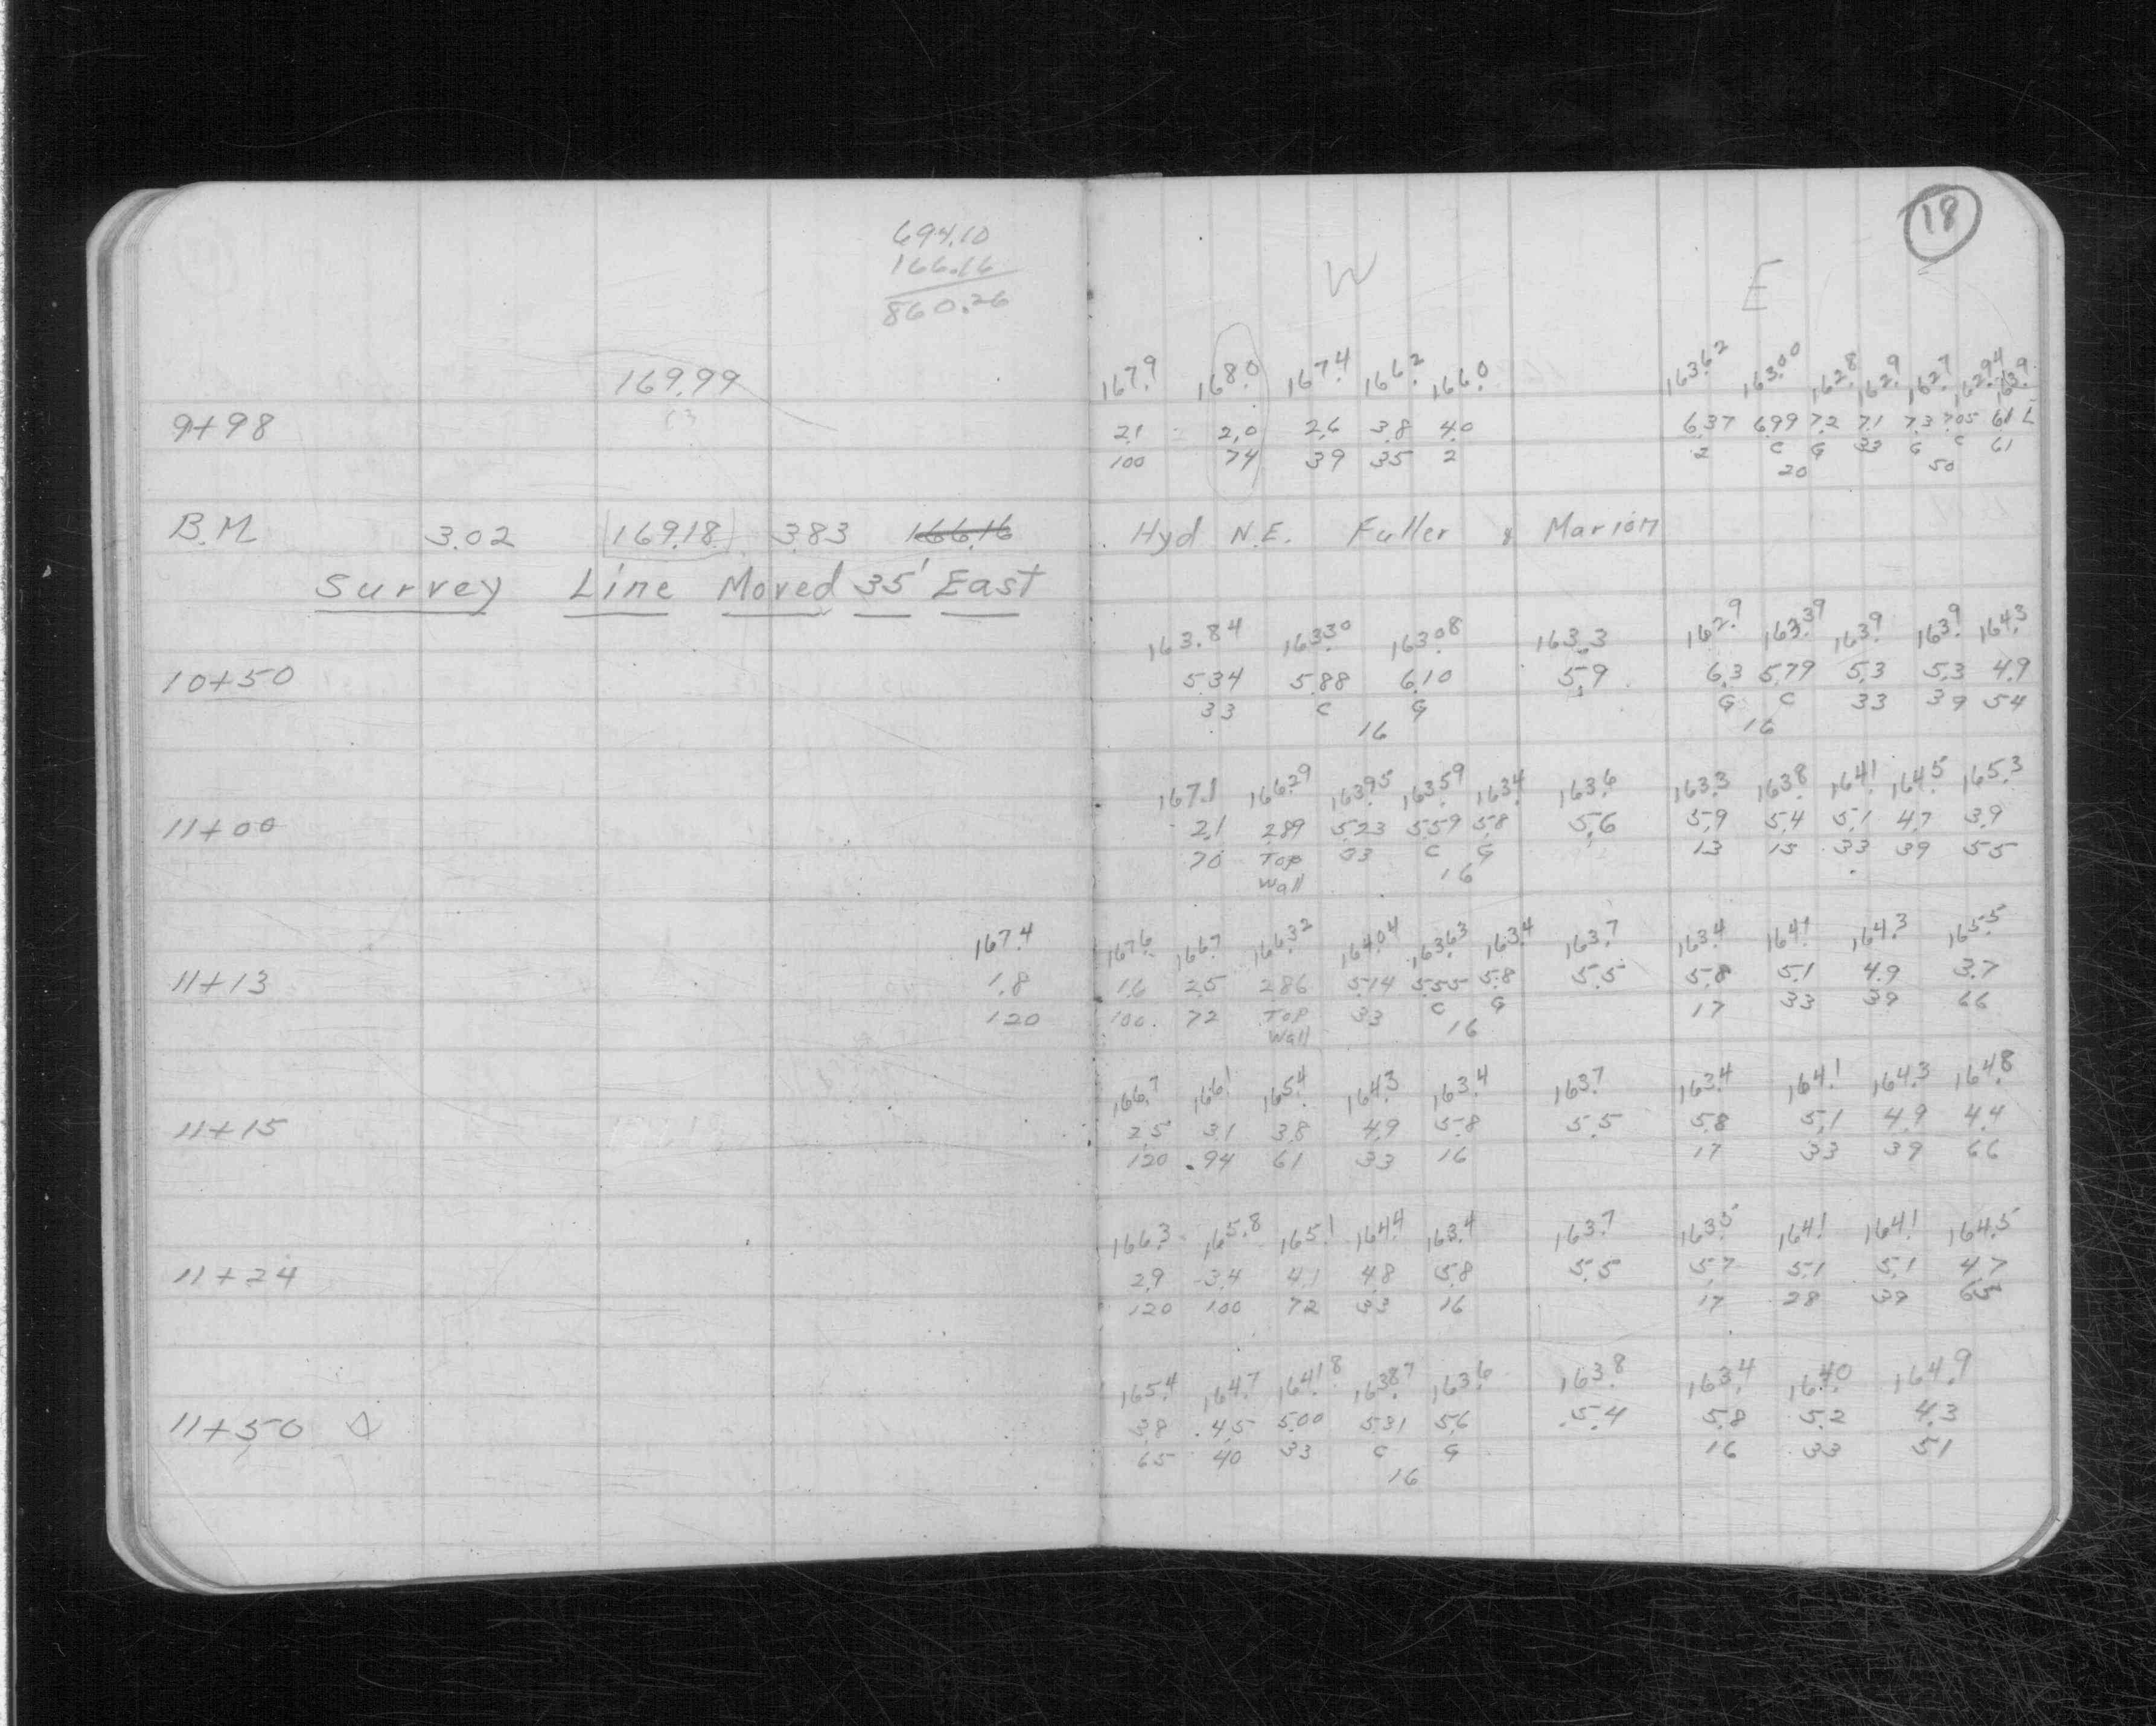 18
694.10
166.16
860.26
W E
169.99 167.9 168.0 167.4 166.2 166.0 163.62 163.00 162.8 162.9 162.7 162.94 163.9
9+98 2.1 2.0 2.6 3.8 4.0 6.37 6.99 7.2 7.1 7.3 7.05 6.1 L
100 74 39 35 2 2 C G 33 G C 61
20 50
B.M 3.02 169.18 3.83 166.16 Hyd N.E. Fuller & Marion
Survey Line Moved 35' East
163.84 163.30 163.08 163.3 162.9 163.39 163.9 163.9 164.3
10+50 5.34 5.88 6.10 5.9 6.3 5.79 5.3 5.3 4.9
33 C G G C 33 39 54
16 16
167.1 166.29 163.95 163.59 163.4 163.6 163.3 163.8 164.1 164.5 165.3
11+00 2.1 2.89 5.23 5.59 5.8 5.6 5.9 5.4 5.1 4.7 3.9
70 Top 33 C G 13 15 33 39 55
Wall 16
167.4 167.6 166.7 166.32 164.04 163.63 163.4 163.7 163.4 164.1 164.3 165.5
11+13 1.8 1.6 2.5 2.86 5.14 5.55 5.8 5.5 5.8 5.1 4.9 3.7
120 100 72 Top 33 C G 17 33 39 66
Wall 16
166.7 166.1 165.4 164.3 163.4 163.7 163.4 164.1 164.3 164.8
11+15 2.5 3.1 3.8 4.9 5.8 5.5 5.8 5.1 4.9 4.4
120 94 61 33 16 17 33 39 66
166.3 165.8 165.1 164.4 163.4 163.7 163.5 164.1 164.1 164.5
11+24 2.9 3.4 4.1 4.8 5.8 5.5 5.7 5.1 5.1 4.7
120 100 72 33 16 17 28 39 65
165.4 164.7 164.18 163.87 163.6 163.8 163.4 164.0 164.9
11+50 3.8 4.5 5.00 5.31 5.6 5.4 5.8 5.2 4.3
65 40 33 C G 16 33 51
16